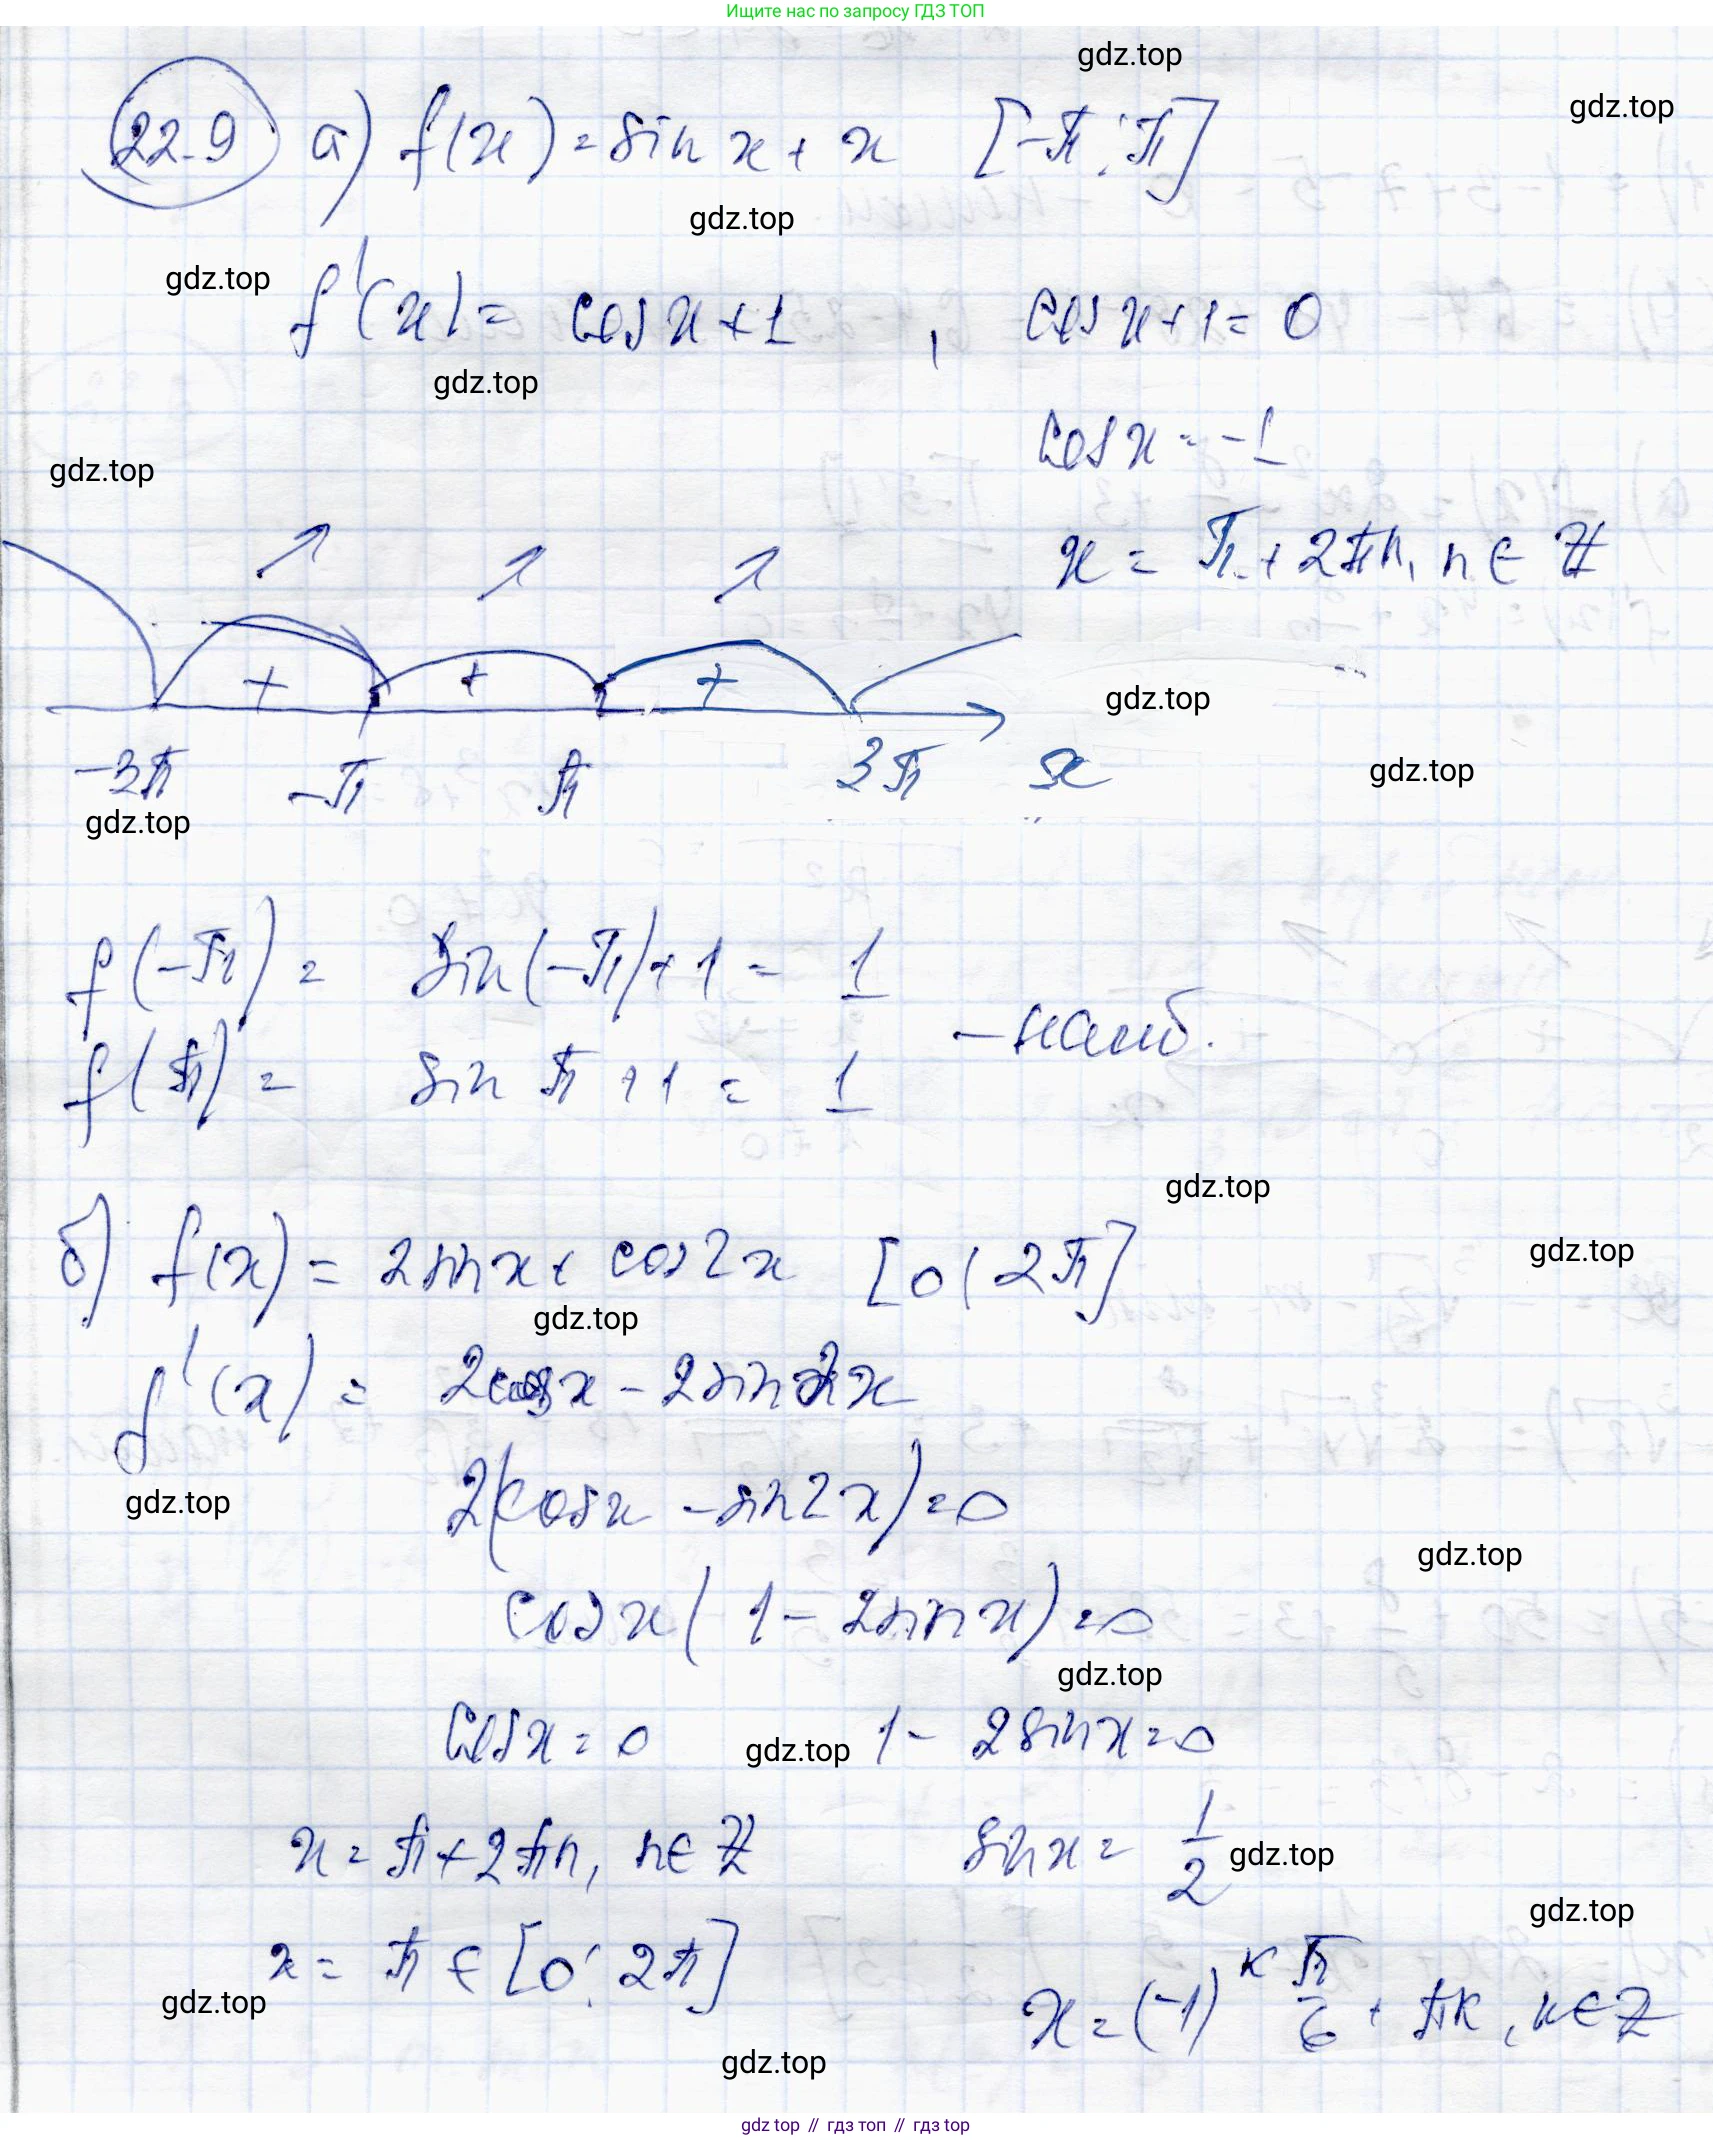 Ищите нас по запросу ГДЗ ТОП
gdz.top
gdz.top
22.9 а) f(x) = sin x + x [-π; π]
gdz.top
gdz.top
f'(x) = cos x + 1 , cos x + 1 = 0
gdz.top
cos x = -1
gdz.top
x = π + 2πn, n ∈ Z
+ + +
gdz.top
-3π -π π 3π x
gdz.top
gdz.top
f(-π) = sin(-π) + 1 = 1
- наиб.
f(π) = sin π + 1 = 1
gdz.top
б) f(x) = 2 sin x + cos 2x [0; 2π]
gdz.top
gdz.top
f'(x) = 2cos x - 2 sin 2x
gdz.top
2(cos x - sin 2x) = 0
gdz.top
cos x (1 - 2 sin x) = 0
gdz.top
cos x = 0 1 - 2 sin x = 0
gdz.top
x = π + 2πn, n ∈ Z sin x = 1/2
gdz.top
gdz.top
x = π ∈ [0; 2π]
gdz.top
x = (-1)^к π/6 + πк, к ∈ Z
gdz.top
gdz top // гдз топ // гдз top